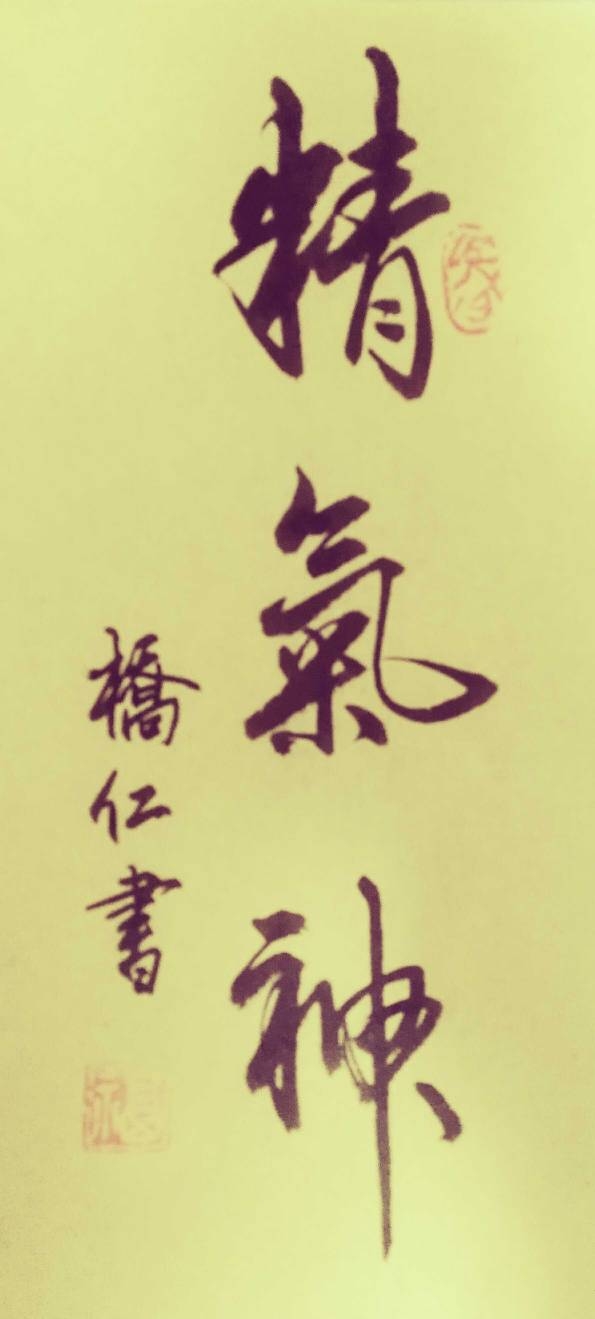 精氣神
橋仁書